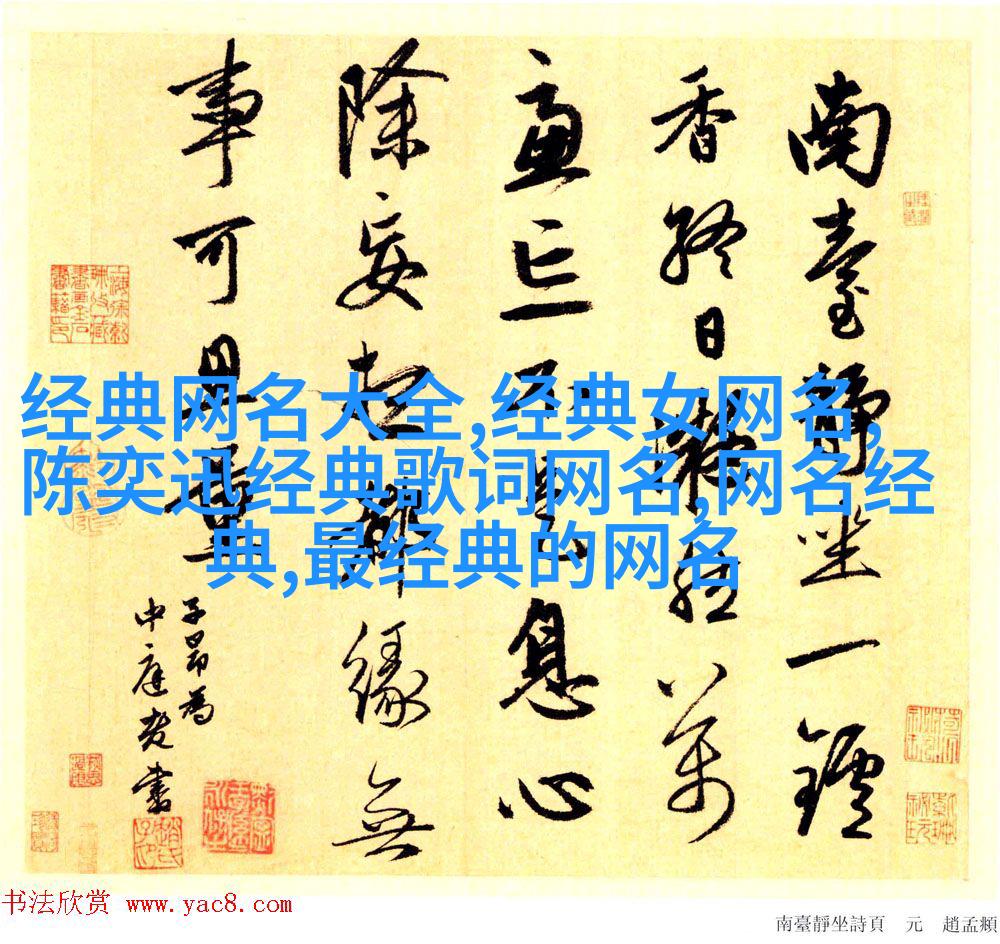 南臺靜坐一鑪
香終日凝然萬
慮亡不是息心
除妄想都緣無
事可思量
子昂為
中庭老書
经典网名大全,经典女网名,
陈奕迅经典歌词网名,网名经
典,最经典的网名
书法欣赏 www.yac8.com
南臺靜坐詩頁 元 趙孟頫